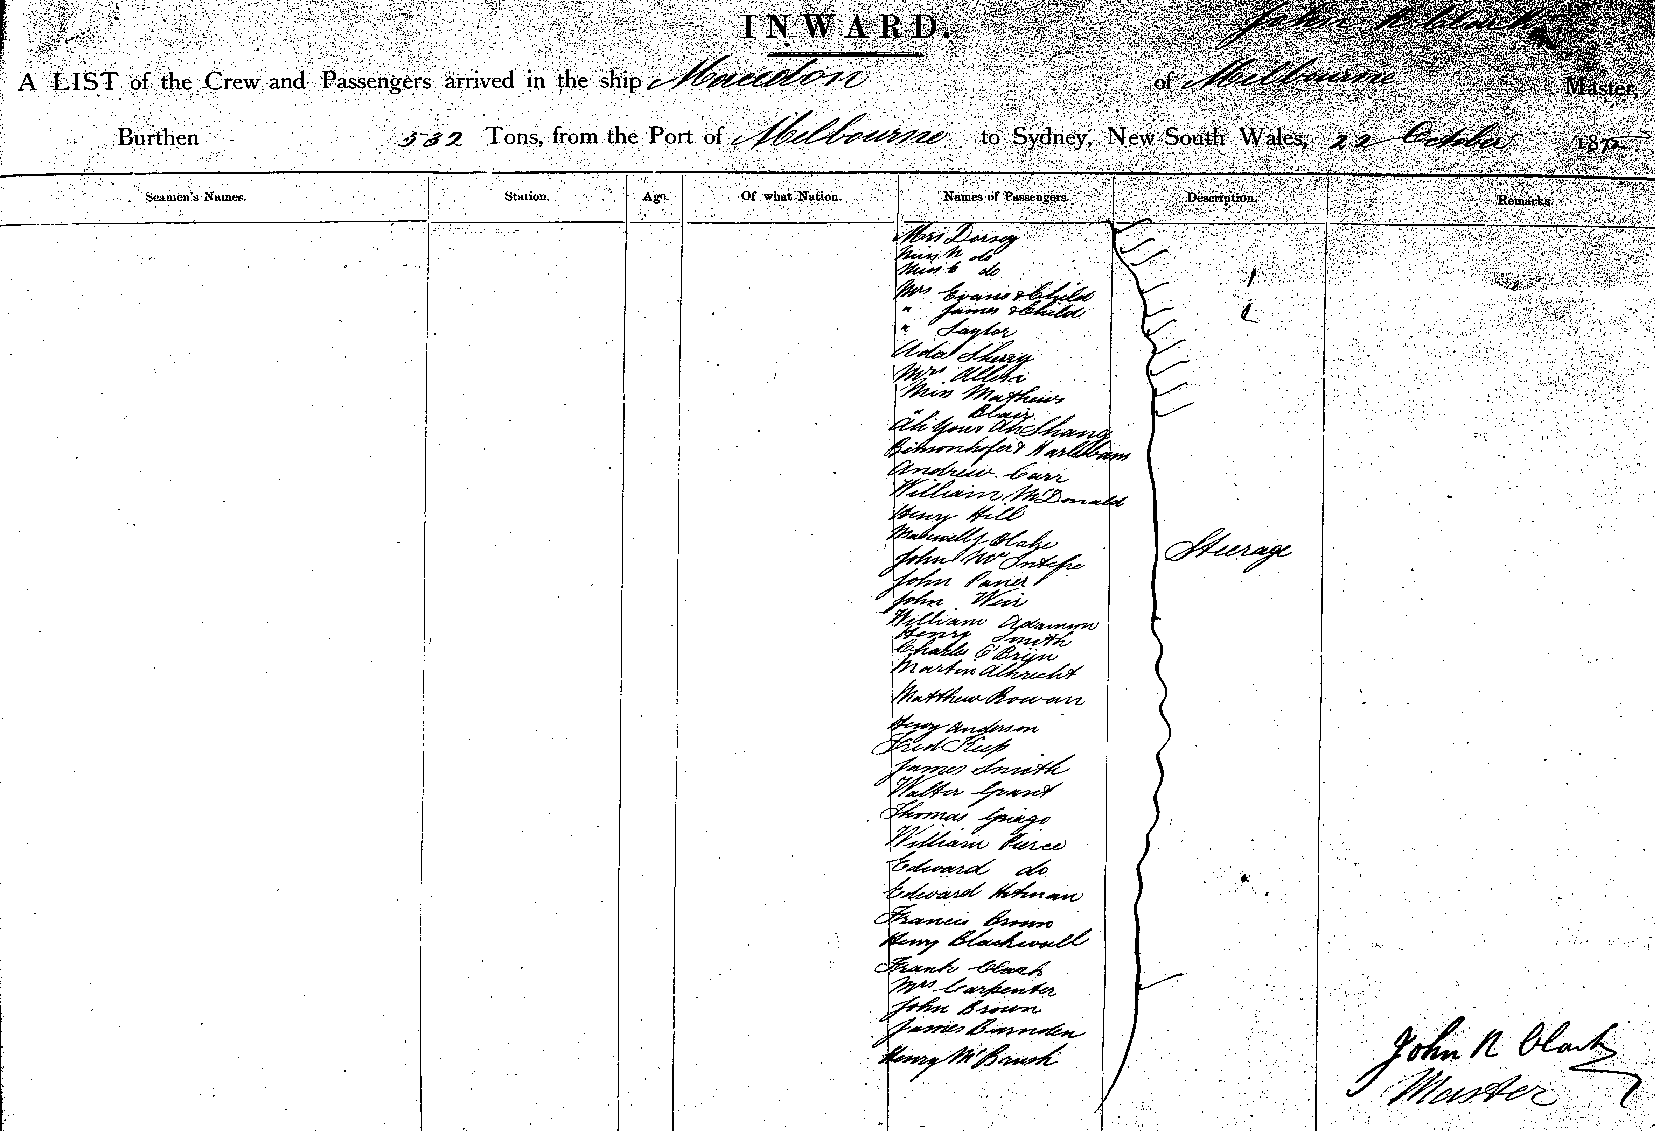 INWARD.
John R Clark
A LIST of the Crew and Passengers arrived in the ship Macedon of Melbourne Master,
Burthen 532 Tons, from the Port of Melbourne to Sydney, New South Wales, 22 October 1872
Seamen's Names. Station. Age. Of what Nation. Names of Passengers. Description. Remarks.
Mrs Dorsey
Miss do
Miss do
Mrs Evans & Child
" James & Child
" Taylor
Ada
Mrs Allen
Miss Mathews
" Blair
Ah Shang
Andrew Carr
William McDonald
Henry Hill
Blake
Steerage
John
John
John Weir
William Adamson
Henry Smith
Charles O Bryn
Martin Albrecht
Matthew Rowan
Henry Anderson
Fred Keep
James Smith
Walter Grant
Thomas
William Pierce
Edward do
Edward
Francis Brown
Henry Blackwall
Frank Clark
Mrs Carpenter
John Brown
James Barnden
Henry
John R Clark
Master